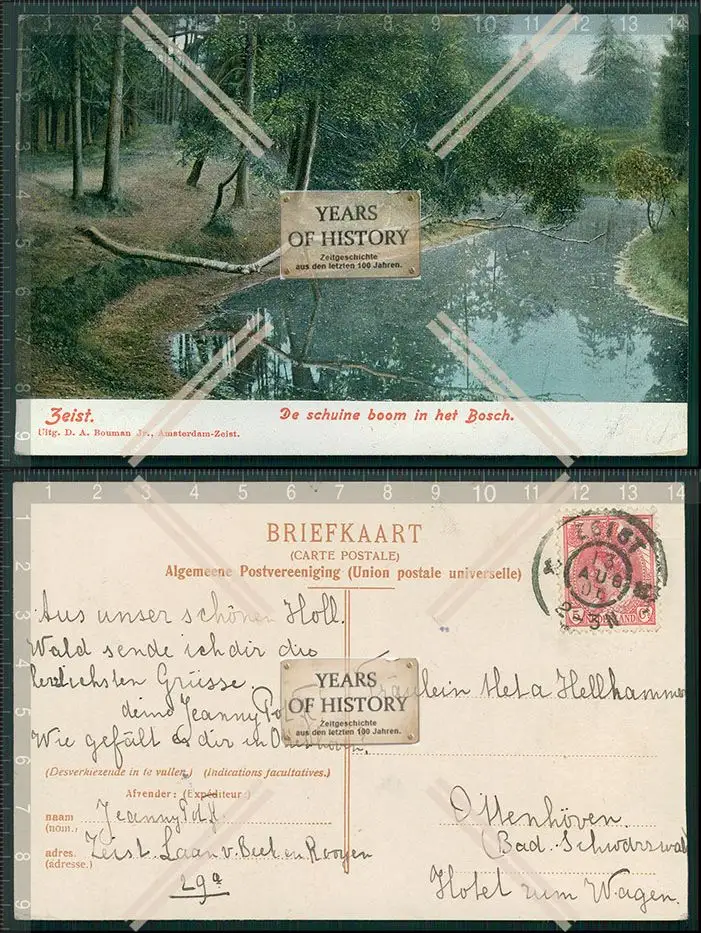 YEARS
OF HISTORY
Zeitgeschichte
aus den letzten 100 Jahren.
Zeist.
De schuine boom in het Bosch.
Uitg. D. A. Bouman Jr., Amsterdam-Zeist.
BRIEFKAART
(CARTE POSTALE)
Algemeene Postvereeniging (Union postale universelle)
ZEIST
13
AUG
2-3N
Aus unser schönen Holl.
Wald sende ich dir die
herzlichsten Grüsse.
deine Jeanny
Wie gefält es dir in
Fräulein Meta Hellhammer
YEARS
OF HISTORY
Zeitgeschichte
aus den letzten 100 Jahren.
(Desverkiezende in te vullen.) (Indications facultatives.)
Afzender: (Expéditeur:)
naam
(nom.)
Jeanny
adres.
(adresse.)
Zeist. Laan v. Beek en Rooyen
29a
Ottenhöven.
(Bad. Schwarzwald
Hotel zum Wagen.